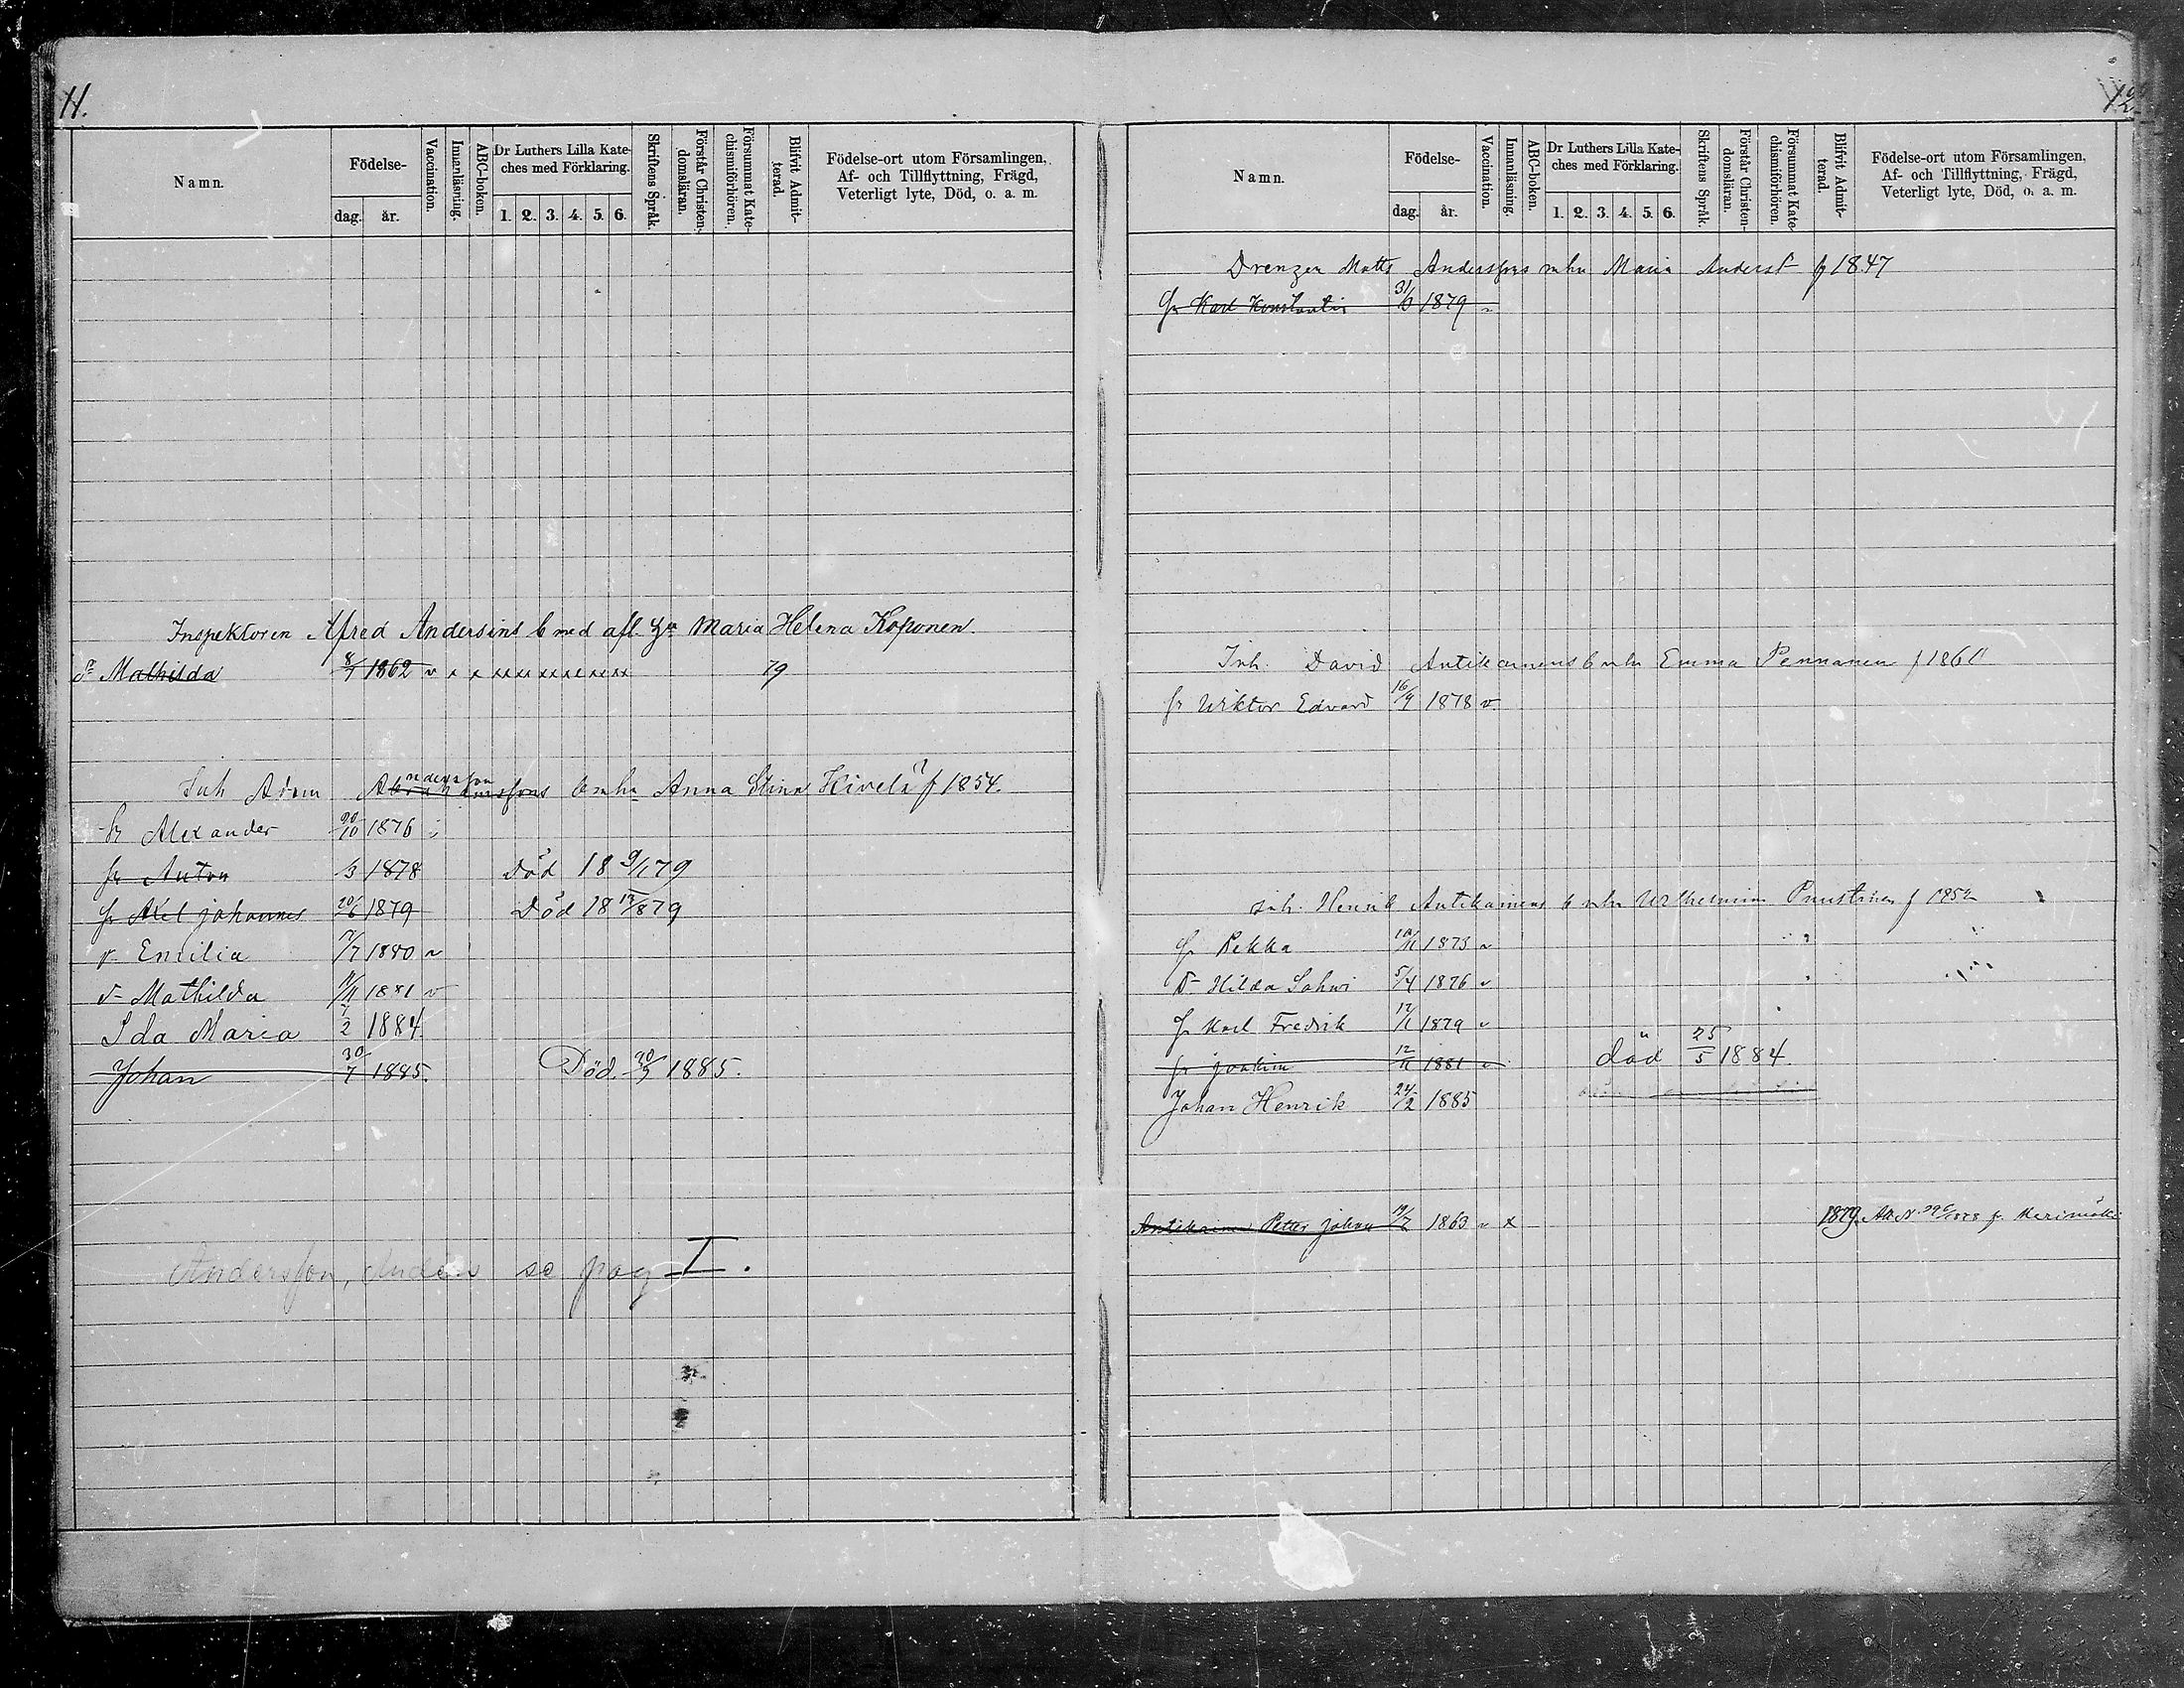 11.
Namn.
Födelse-
dag. år.
Vaccination.
Innanläsning.
ABC-boken.
Dr Luthers Lilla Kate-
ches med Förklaring.
1. 2. 3. 4. 5. 6.
Skriftens Språk.
Förstår Christen-
domsläran.
Försummat Kate-
chismiförhören.
Blifvit Admit-
terad.
Födelse-ort utom Församlingen,
Af- och Tillflyttning, Frägd,
Veterligt lyte, Död, o. a. m.
Inspektoren Alfred Andersins b med afl. Maria Helena Koponen.
Mathilda 8/7 1862 v x x xx xx xx xx xx 79
Inh Adam Andersson b m hu Anna Stina f 1854.
Alexander 1876
Anton 1878 Död 18 9/1 79
Axel Johannes 20/6 1879 Död 18 79
Emilia 1880 v
Mathilda 1881 v
Ida Maria 7/2 1884.
Johan 30/7 1885. Död. 1885.
Andersson, Anders se pag I.
Namn.
Födelse-
dag. år.
Vaccination.
Innanläsning.
ABC-boken.
Dr Luthers Lilla Kate-
ches med Förklaring.
1. 2. 3. 4. 5. 6.
Skriftens Språk.
Förstår Christen-
domsläran.
Försummat Kate-
chismiförhören.
Blifvit Admit-
terad.
Födelse-ort utom Församlingen,
Af- och Tillflyttning, Frägd,
Veterligt lyte, Död, o. a. m.
Drengen Matts Anderssons m hu Maria f 1847
Karl Konstantin 1879
Inh. David Antikainens b m hu Emma Pennanen f 1860
Wiktor Edvard 16/9 1878 v.
Inh. Henrik Antikainens b m hu Wilhelmina f 1852
Pekka 1873 v
Hilda 5/4 1876 v
Karl Fredrik 1879 v
Joakim 1881 v död 25/5 1884.
Johan Henrik 24/2 1885
Antikainen Petter Johan 19/7 1863 v x 1879.